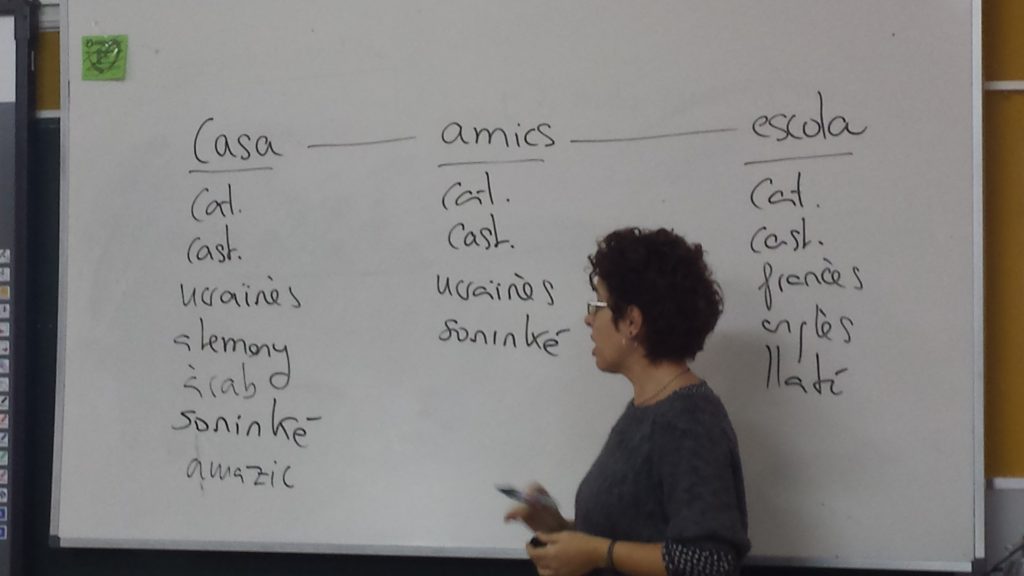 Casa — amics — escola
Cat.
Cast.
ucraïnès
alemany
àrab
soninké
amazic
Cat.
Cast.
ucraïnès
soninké
Cat.
Cast.
francès
anglès
llatí